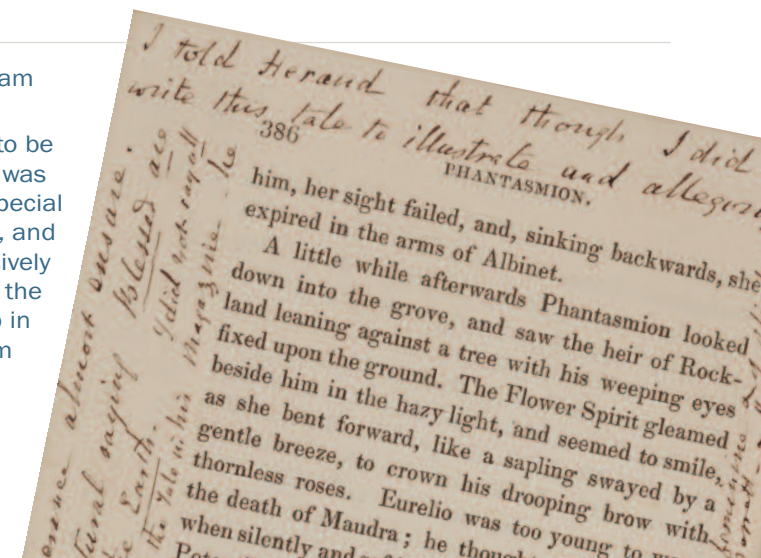 am
to be
was
pecial
, and
ively
the
o in
m
I told Heraud that though I did
write this tale to illustrate and allegori
386
PHANTASMION.
him, her sight failed, and, sinking backwards, she
expired in the arms of Albinet.
A little while afterwards Phantasmion looked
down into the grove, and saw the heir of Rock-
land leaning against a tree with his weeping eyes
fixed upon the ground. The Flower Spirit gleamed
beside him in the hazy light, and seemed to smile,
as she bent forward, like a sapling swayed by a
gentle breeze, to crown his drooping brow with
thornless roses. Eurelio was too young to
the death of Maudra; he though
when silently and
almost ensare.
tural saying Blessed are
Earth.
I did not say all
the Tale in his Magazine he